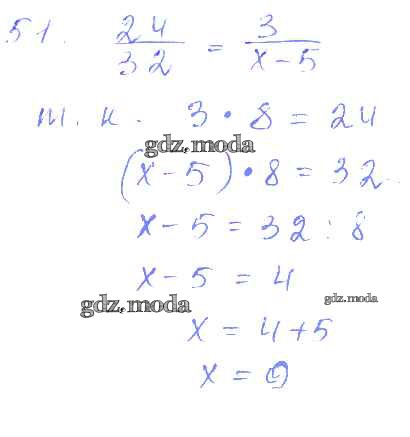 51. 24/32 = 3/(x-5)
т.к. 3 • 8 = 24
gdz.moda
(x-5) • 8 = 32
x-5 = 32 : 8
x-5 = 4
gdz.moda
gdz.moda
x = 4+5
x = 9